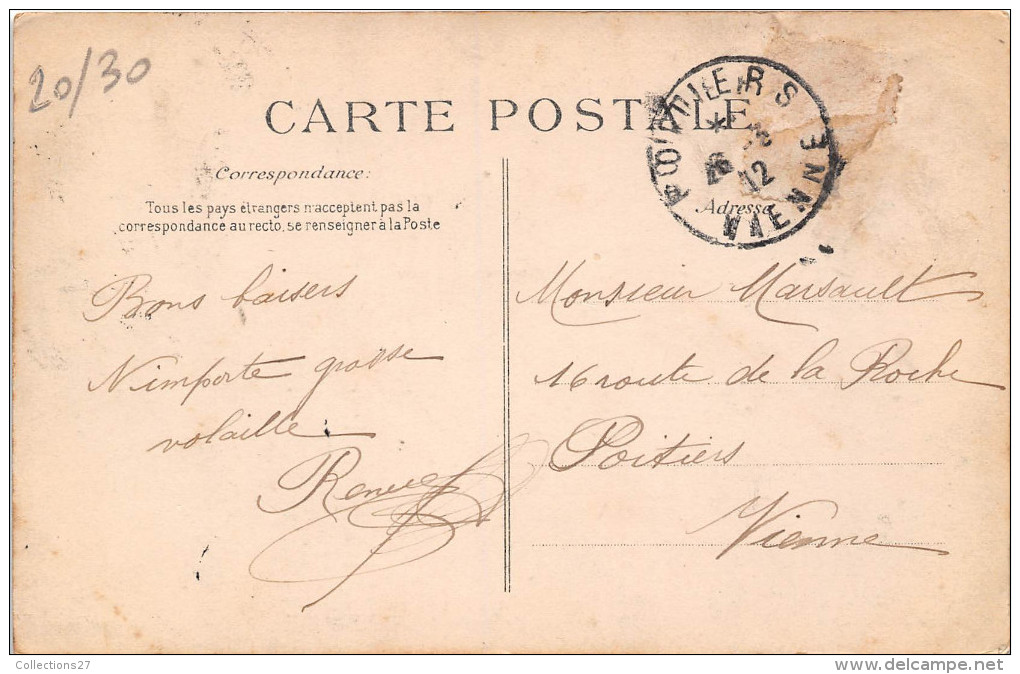 20/30
CARTE POSTALE
POITIERS
26
12
VIENNE
Correspondance:
Tous les pays étrangers n'acceptent pas la
correspondance au recto, se renseigner à la Poste
Adresse
Bons baisers
N'importe grosse
volaille
Monsieur Marsault
16 route de la Roche
Poitiers
Vienne
Collections27
delcampe.net